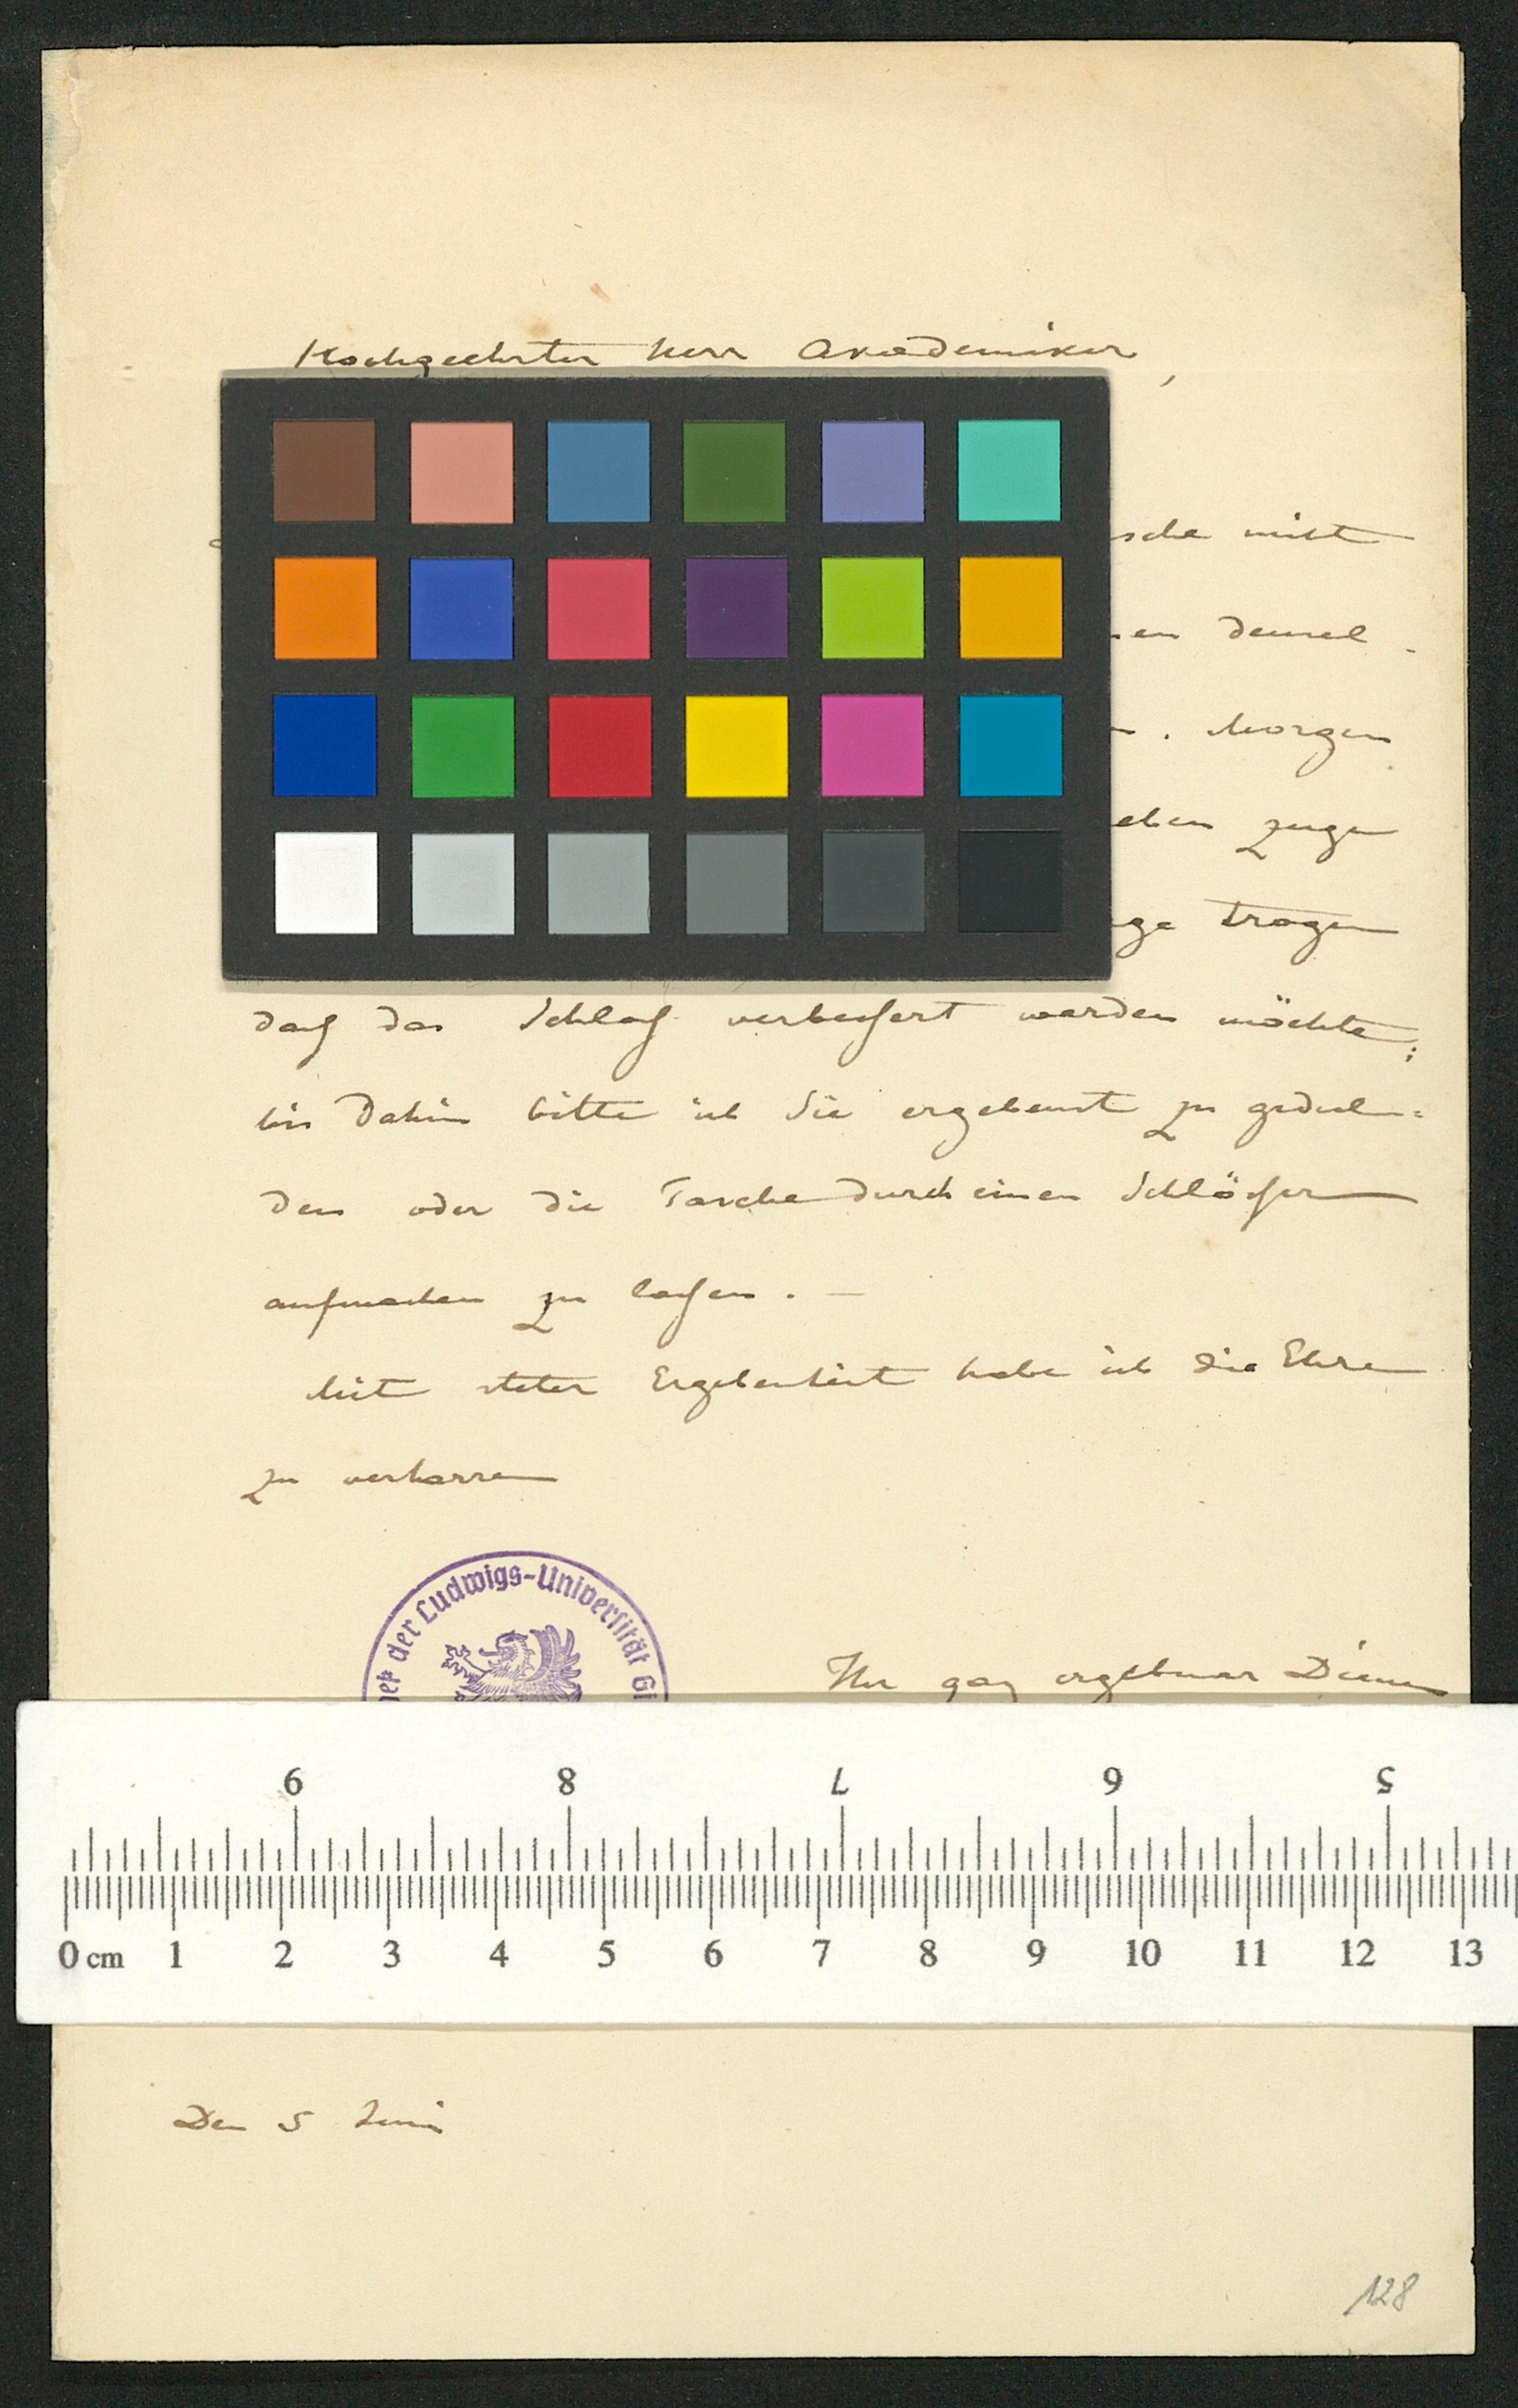 Hochgeehrter Herr Akademiker,
sche mitt
en demsel-
. Morgen
eben zuge
ge tragen
daß das Schloß verbessert werden möchte;
bis dahin bitte ich Sie ergebenst zu gedul=
den oder die Tasche durch einen Schlößer
aufmachen zu laßen. —
Mit steter Ergebenheit habe ich die Ehre
zu verharren
der Ludwigs-Universität Gi
Ihr ganz ergebener Diener
9 8 7 6 5
0 cm 1 2 3 4 5 6 7 8 9 10 11 12 13
Den 5 Juni
128